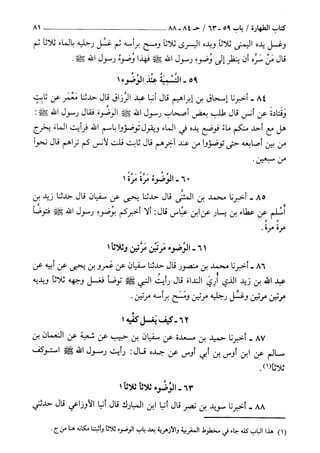 كتاب الطهارة / باب ٥٩ - ٦٣ / حـ ٨٤ - ٨٨ ٨١
وغسل يده اليمنى ثلاثا ويده اليسرى ثلاثا ومسح برأسه ثم غَسل رجليه بالماء ثلاثا ثم
قال مَنْ سَرّه أن ينظر إلى وُضوءِ رسول الله ﷺ فهذا وُضوءُ رسول الله ﷺ.
٥٩ - التَّسْمِيَةُ عِنْدَ الوُضوءِ١
٨٤ - أخبرنا إسحاق بن إبراهيم قال أنبا عبد الرزاق قال حدثنا مَعْمَر عن ثابتٍ
وقَتادة عن أنس قال طلب بعض أصحاب رسول الله ﷺ الوضوءَ فقال رسول الله ﷺ:
هل مع أحد منكم ماءً فوضع يده في الماء ويقول توضؤوا باسم الله فرأيت الماء يخرج
من بين أصابعه حتى توضؤوا من عند آخرهم قال ثابت قلت لأنس كم تراهم قال نحواً
من سبعين.
٦٠ - الوضوء مَرّةً مَرّةً ١
٨٥ - أخبرنا محمد بن المثنَّى قال حدثنا يحيى عن سفيان قال حدثنا زيد بن
أسْلم عن عطاء بن يسار عن ابن عباس قال: ألا أخبركم بوُضوءِ رسول الله ﷺ فتوضأ
مرةً مرةً.
٦١ - الوضوء مَرَّتين مَرّتين وثلاثا١
٨٦ - أخبرنا محمد بن منصور قال حدثنا سفيان عن عَمرو بن يحيى عن أبيه عن
عبد الله بن زيد الذي أُريَ النداءَ قال رأيتُ النبي ﷺ توضأ فغسل وجهه ثلاثاً ويديه
مرتين مرتين وغسَّل رجليه مرتين ومَسَح برأسه مرتين.
٦٢ - كيف يَغسل كفيه١
٨٧ - أخبرنا حميد بن مسعدة عن سفيان بن حبيب عن شعبة عن النعمان بن
سالم عن ابن أوس بن أبي أوس عن جده قال: رأيت رسول الله ﷺ استوكف
ثلاثا(١).
٦٣ - الوُضوء ثلاثاً ثلاثاً ١
٨٨ - أخبرنا سويد بن نصر قال أنبا ابن المبارك قال أنبا الأوزاعي قال حدثني
(١) هذا الباب كله جاء في مخطوط المغربية والأزهرية بعد باب الوضوء ثلاثاً وأثبتنا مكانه هنا من ج.